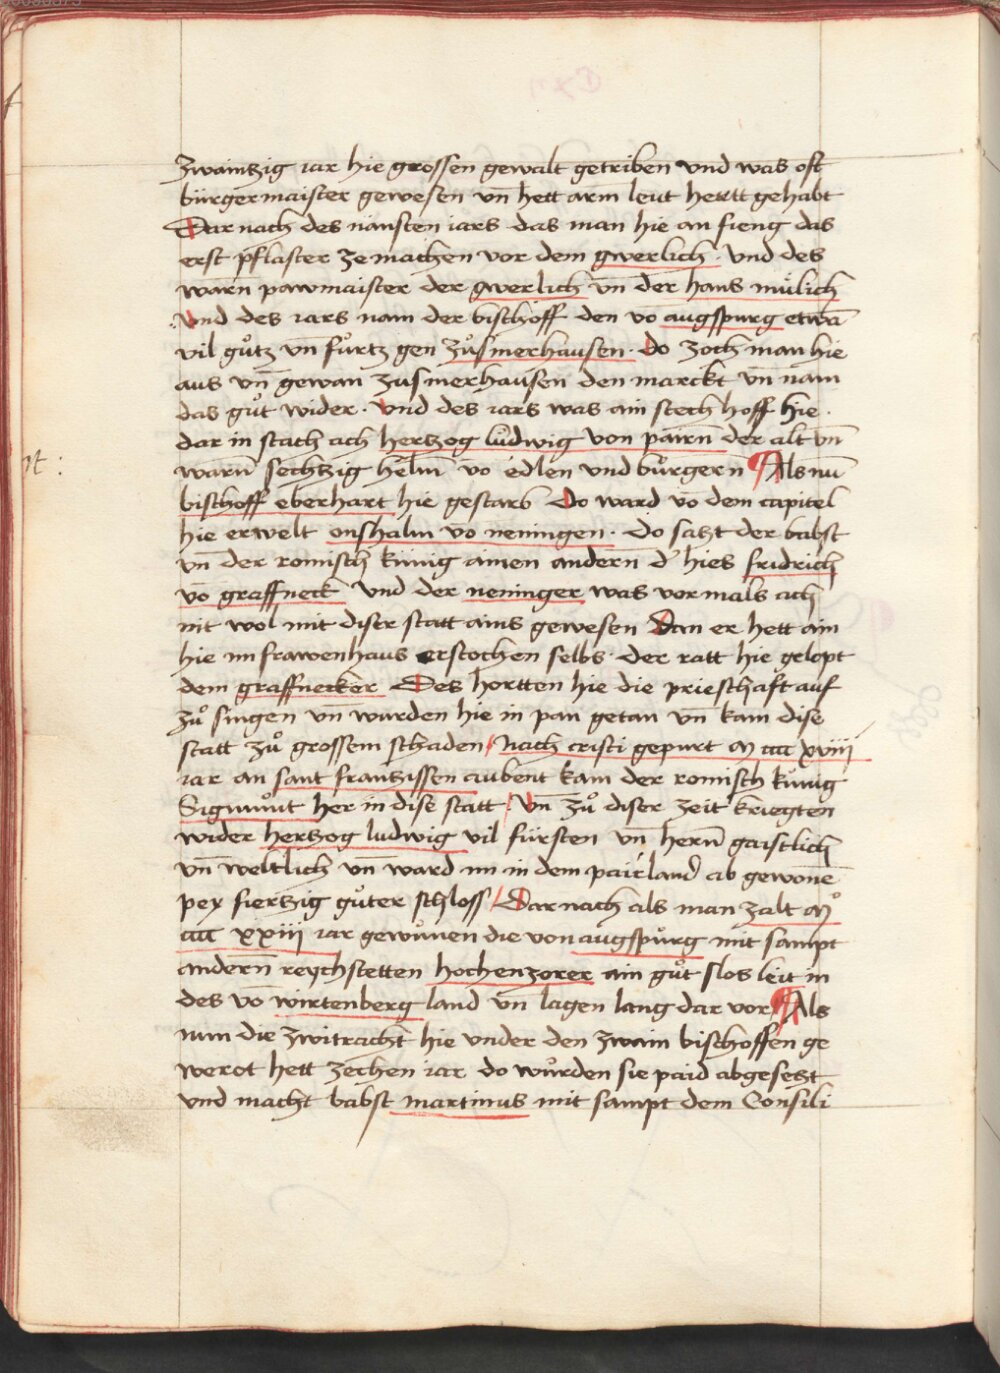 zwaintzig iar hie grossen gewalt getriben und was oft
bürgermaister gewesen vn̄ hett arm leut hertt gehabt
Dar nach des nänsten iars das man hie an fieng das
erst pflaster ze machen vor dem gwerlich · und des
warn̄ pawmaister der gwerlich vn̄ der hans mülich
Und des iars nam der bischoff den vō augspurg etwā
vil gůtz vn̄ fůrtz gen zůsmerhausen · Do zoch man hie
aus vn̄ gewan zusmerhausen den marckt vn̄ nam
das gůt wider · Und des iars was ain stech hoff hie ·
dar in stach ach hertzog lůdwig von pairn̄ der alt vn̄
warn̄ sechtzig helm̄ vō edlen und bůrgern̄ ¶ Als nū
bischoff eberhart hie gestarb Do ward vō dem capitel
hie erwelt onshalm vō neningen · Do satzt der babst
vn̄ der romisch künig ainen andern̄ d' hies fridrich
vō graffneck Und der neninger was vormals ach
nit wol mit diser statt ains gewesen Dan er hett ain
hie im frawenhaus erstochen selbs · der ratt hie gelopt
dem graffnecker Des hortten hie die prieschaft auf
zů singen vn̄ wurden hie in pan getan vn̄ kam dise
statt zů grossem schaden / Nach cristi gepurt M cccc xviij
iar an sant frantzissen aubent kam der romisch kůnig
Sigmůnt her in dise statt · Vn̄ zů diser zeit kriegten
wider hertzog ludwig vil fürsten vn̄ hern̄ gaistlich
vn̄ weltlich vn̄ ward im in dem pairland ab gewonē
pey fiertzig gůter schloss / Dar nach als man zalt Mº
cccc xxiij iar gewunen die von augspurg mit sampt
andern̄ reychstetten hochenzorer ain gůt slos leit in
des vō wirtenberg land vn̄ lagen lang dar vor ¶ Als
nun die zwitracht hie under den zwain bischoffen ge
werot hett zechen iar do wůrden sie paid abgesetzt
und macht babst martinus mit sampt dem Consili